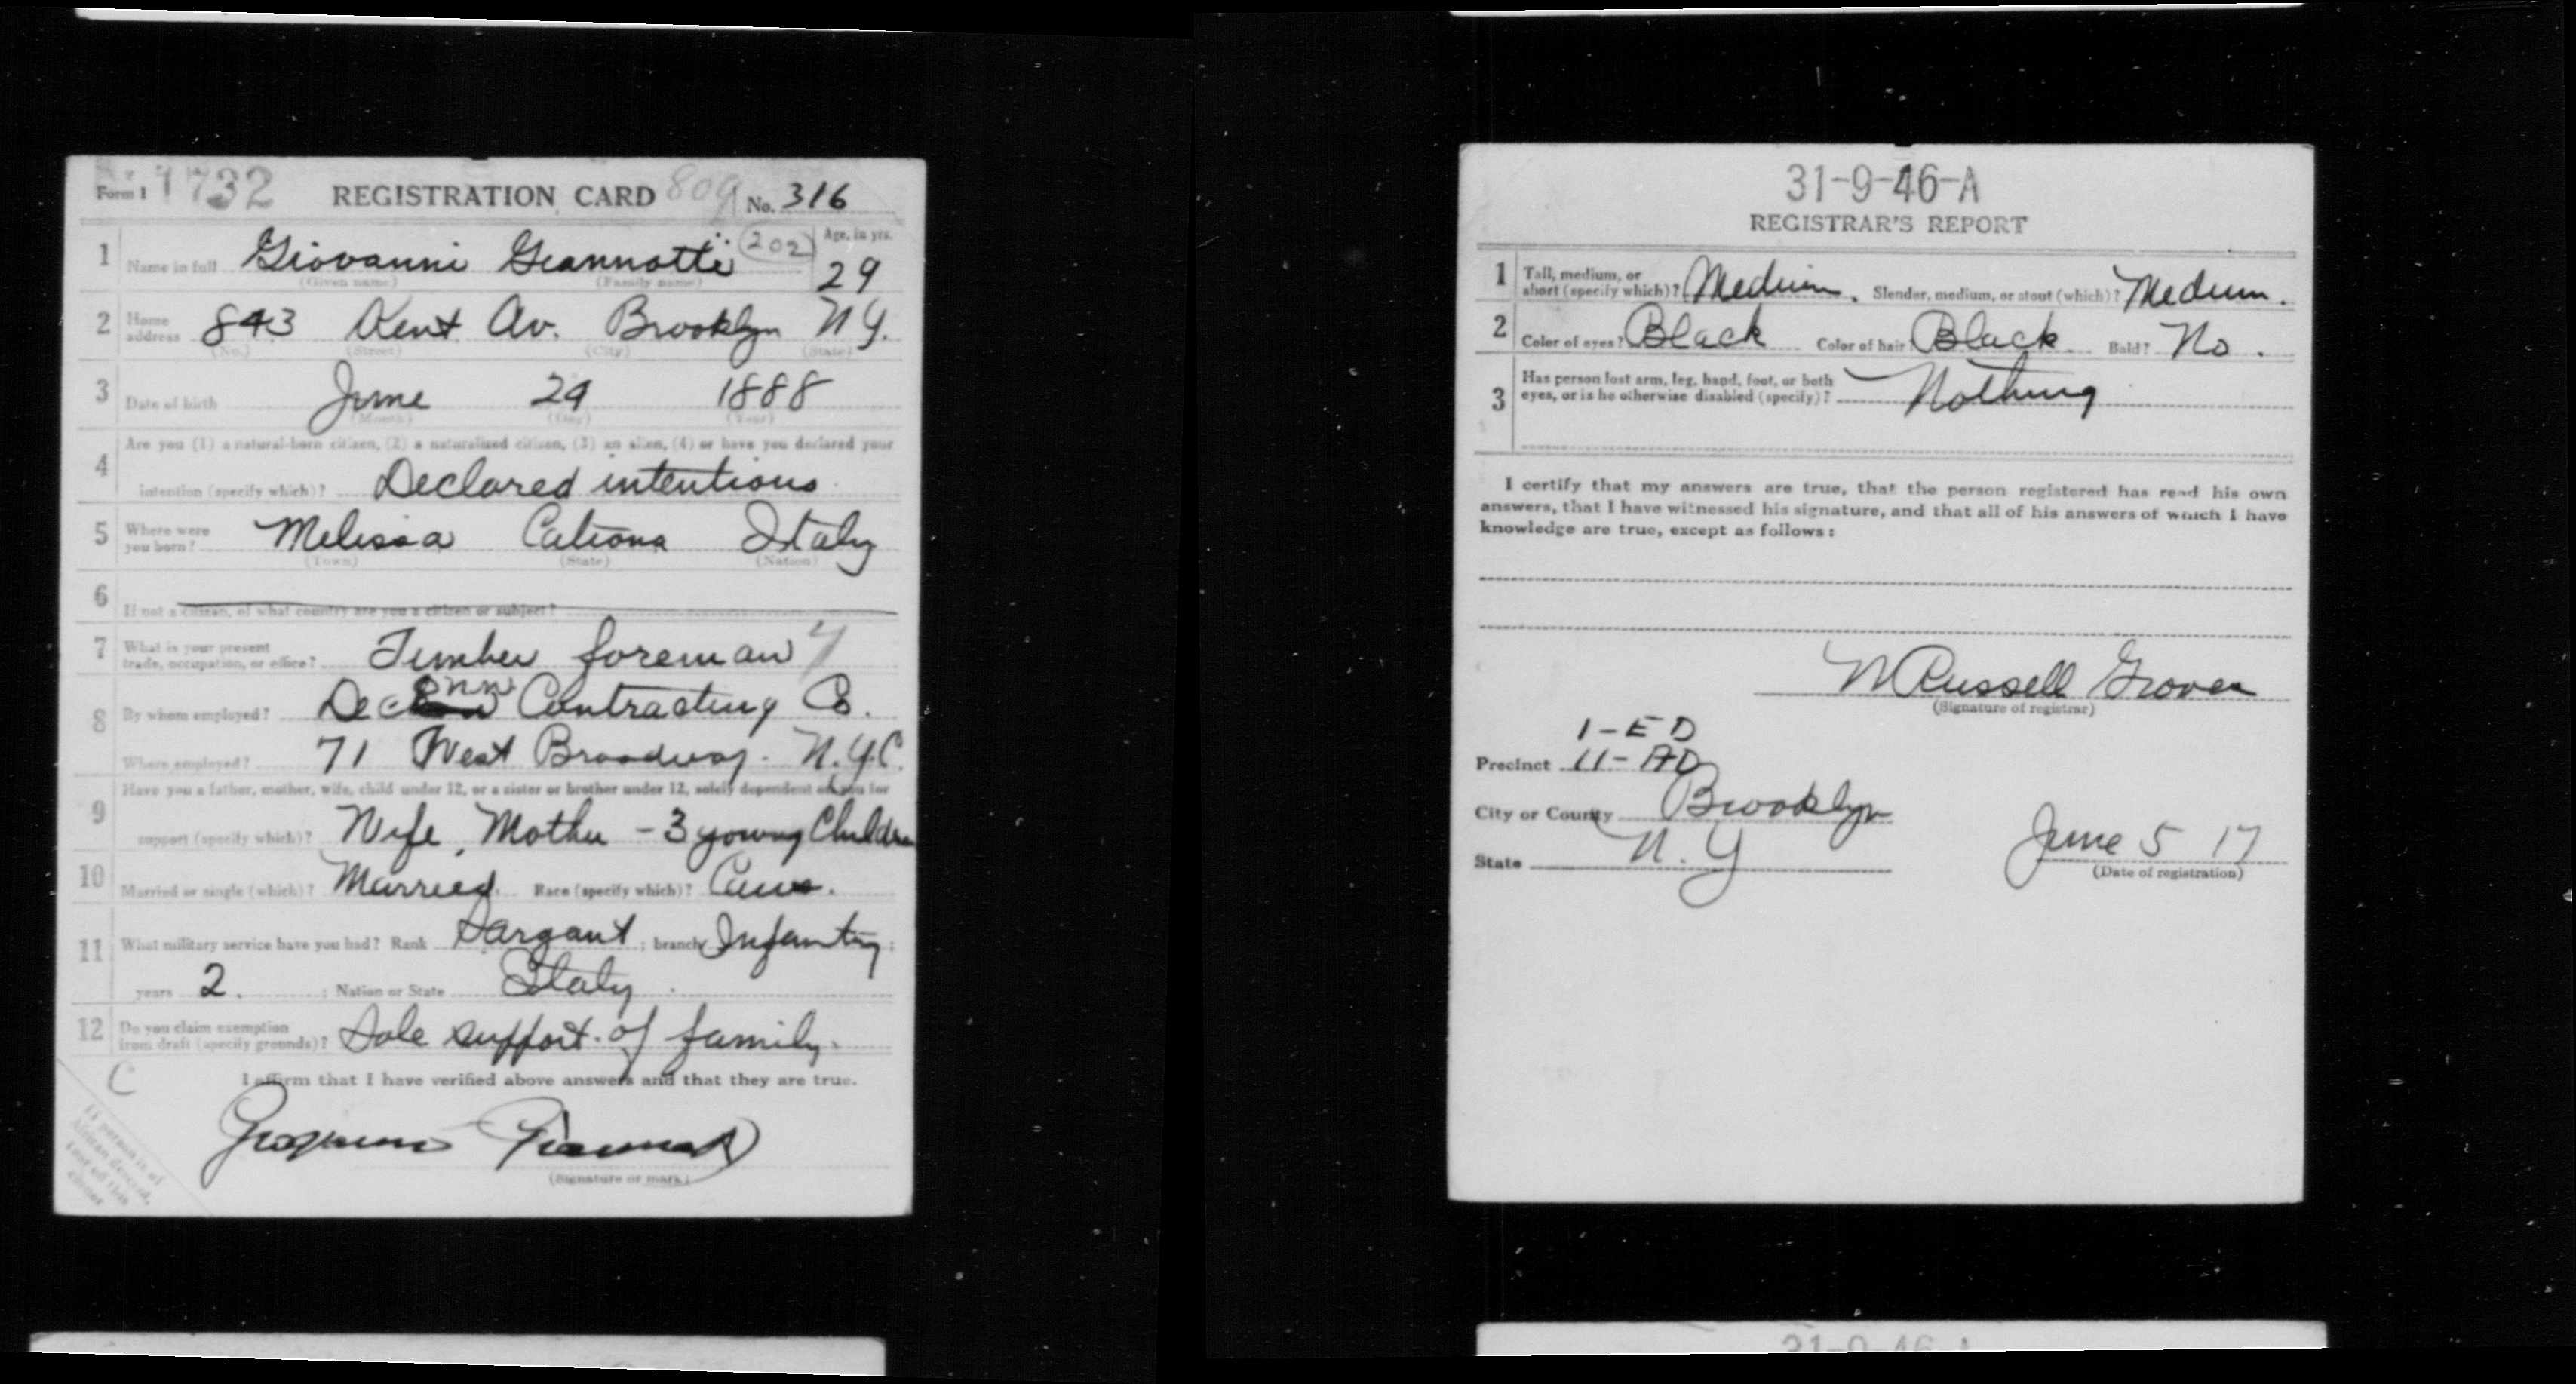 Form 1 1732 REGISTRATION CARD 809 No. 316
1 Name in full Giovanni Giannotti 202 Age, in yrs. 29
(Given name) (Family name)
2 Home address 843 Kent Av. Brooklyn N.Y.
(No.) (Street) (City) (State)
3 Date of birth June 29 1888
(Month) (Day) (Year)
4 Are you (1) a natural-born citizen, (2) a naturalized citizen, (3) an alien, (4) or have you declared your
intention (specify which)? Declared intentions
5 Where were you born? Melissa Italy
(Town) (State) (Nation)
6 If not a citizen, of what country are you a citizen or subject?
7 What is your present trade, occupation, or office? Timber foreman
8 By whom employed? Contracting Co.
Where employed? 71 West Broadway. N.Y.C.
9 Have you a father, mother, wife, child under 12, or a sister or brother under 12, solely dependent on you for
support (specify which)? Wife, Mother - 3 young Children
10 Married or single (which)? Married. Race (specify which)? Cauc.
11 What military service have you had? Rank Sargant ; branch Infantry ;
years 2. ; Nation or State Italy.
12 Do you claim exemption from draft (specify grounds)? Sole support of family.
C I affirm that I have verified above answers and that they are true.
(Signature or mark)
If person is of
African descent,
tear off this
corner
31-9-46-A
REGISTRAR'S REPORT
1 Tall, medium, or short (specify which)? Medium. Slender, medium, or stout (which)? Medium.
2 Color of eyes? Black Color of hair? Black Bald? No.
3 Has person lost arm, leg, hand, foot, or both
eyes, or is he otherwise disabled (specify)? Nothing
I certify that my answers are true, that the person registered has read his own
answers, that I have witnessed his signature, and that all of his answers of which I have
knowledge are true, except as follows:
M Russell Grover
(Signature of registrar)
1-ED
Precinct 11-AD
City or County Brooklyn
State N.Y
June 5 17
(Date of registration)